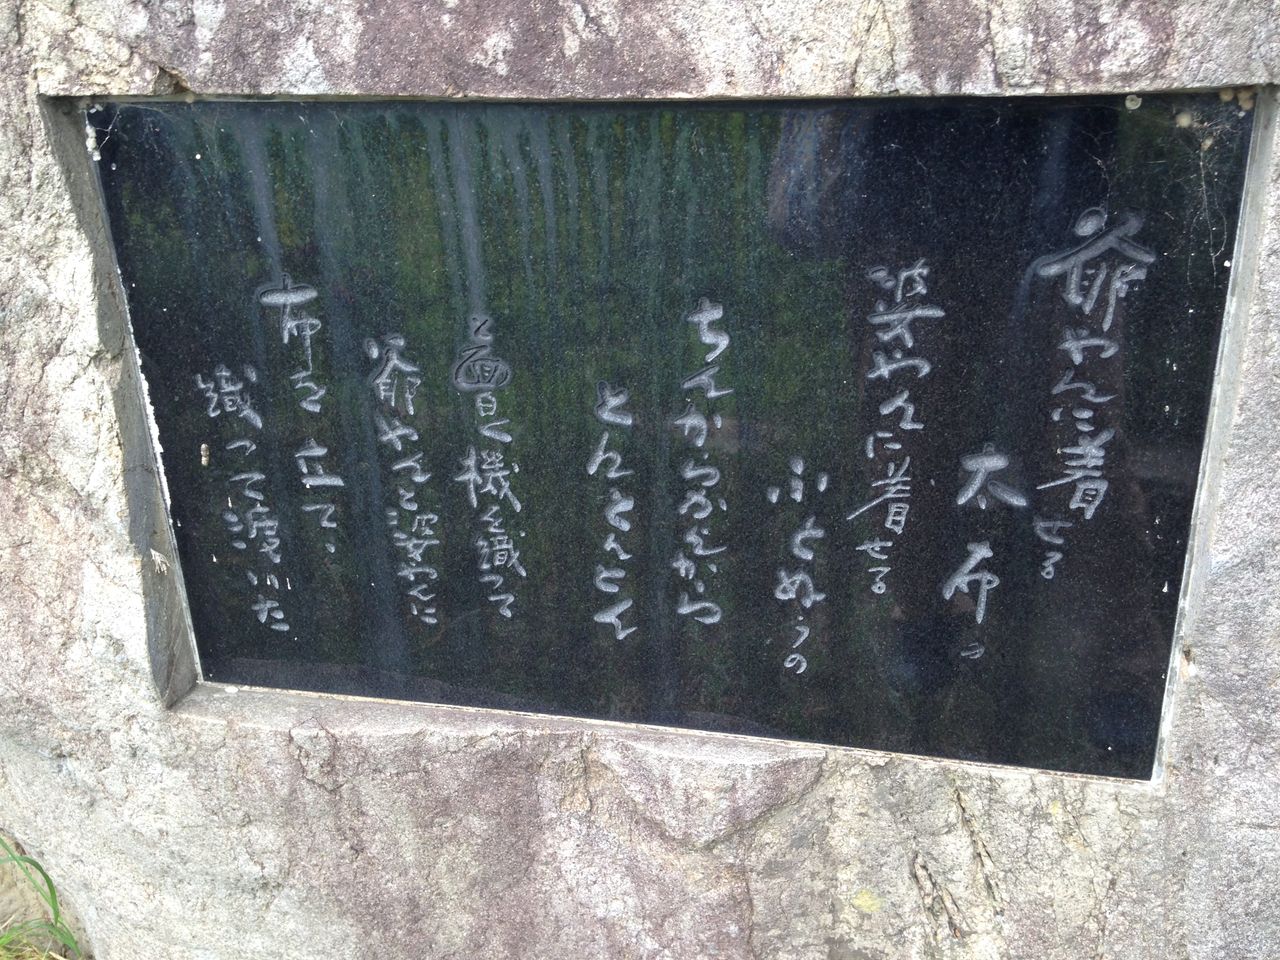 爺やんに着せる
太布の
婆やんに着せる
ふとぬうの
ちんからかんから
とんとんとん
と面白く機を織つて
爺やんと婆やんに
布を立て、
織つて渡いた